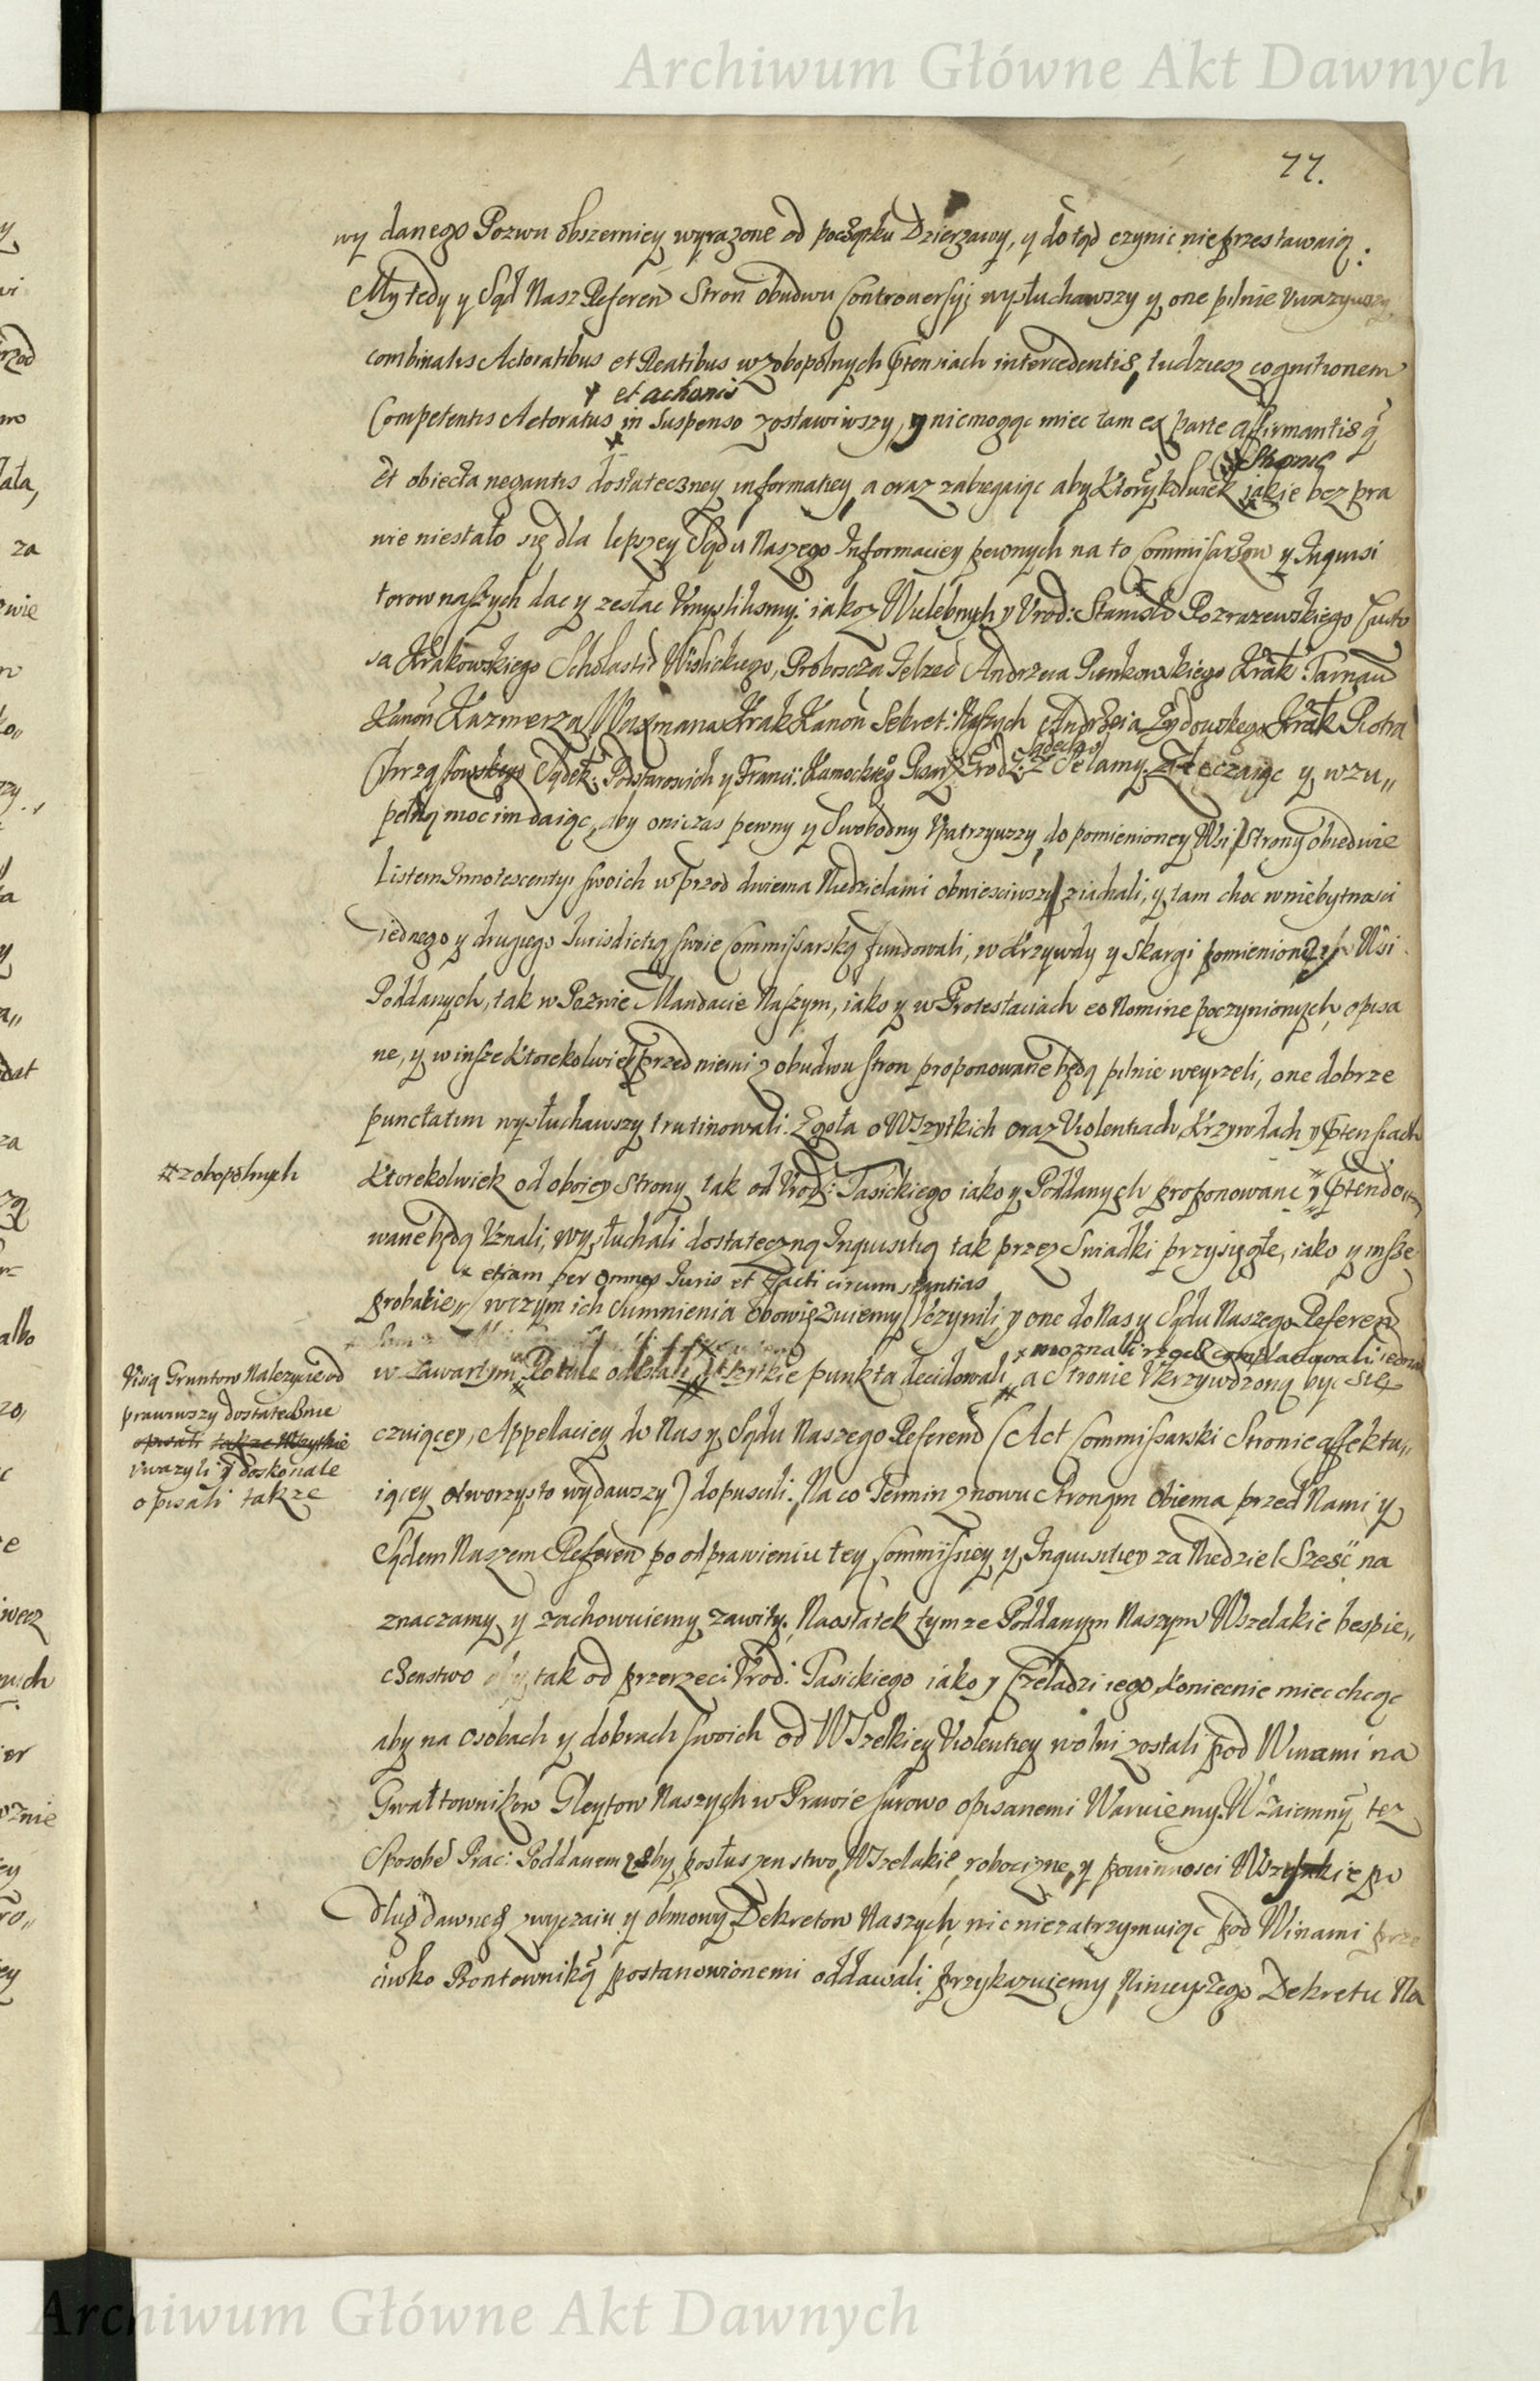 Archiwum Główne Akt Dawnych
77.
wy danego Pozwu obszerniey wyrazone od początku Dzierzawy, y dotąd czynić nieprzestawaią.
My tedy y Sąd Nasz Referen Stron obudwu Controversyi wysłuchawszy y one pilnie uwazywszy
combinatis Actoratibus et Reatibus w zobopolnych Ptensiach intercedentis, tudziesz cognitionem
et actionis
Competentis Actoratus in Suspenso zostawiwszy, y niemogąc miec tam ex parte affirmantis q
Stronie
et obiecta negantis dostateczney informatiey a oraz zabiegaiąc aby ktoreykolwiek jakie bez pra
wie niestało się dla lepszey Sądu Naszego Informaciey pewnych na to Commissarzow y Inquisi
torow naszych dac y zesłac Umyslilismy: iakoz Wielebnych y Urod: Stanisł Rozrazewskiego Custo
sa Krakowskiego Scholastic Wislickiego, Proboscza Andrzeia Pienkowskiego Krak: Tarnau
Kanon Kazmierza Waxmana Krak Kanon Sekret: Naszych Andrzeia Zydowskiego Krak Piotra
Sądeckgo
Sądek: Podstaroscich y Franci: Kamockiego Pisarz Grodz: Zsełamy. Zlecaiąc y wzu,,
pełną moc im daiąc, aby oni czas pewny y Swobodny Upatrzywszy, do pomienioney Wsi Strony obiedwie
Listem Innotescenty: swoich w przod dwiema Niedzielami obwiesciwszy ziachali, y tam choc w niebytnosci
iednego y drugiego Jurisdictią swoie Commissarską fundowali, w krzywdy y skargi pomienionych Wsi
Poddanych, tak w Poznie Mandacie Naszym, iako y w Protestaciach eo Nomine poczynionych, opisa
ne, y w insze ktorekolwiek przed niemi z obudwu stron proponowane będą pilnie weyrzeli, one dobrze
punctatim wysłuchawszy trutinowali. Zgoła o Wszytkich oraz Violentiach Krzywdach y Ptensiach
# zobopolnych
ktorekolwiek od oboiey Strony tak od Urod: Tasickiego iako y Poddanych proponowane y Ptendo,,
wane będą Uznali, wysłuchali dostateczną Inquisitią tak przez Swiadki przysięgłe, iako y insze
etiam per omnes Juris et Facti circumstantias
probatie,, w czym ich Sumnienia obowięzuiemy Uczynili, y one do Nas y Sądu Naszego Referen
w zawartym Rotule odesłali, Wszytkie punkta decidowali, a Stronie Ukrzywdzoną byc się
Visią Gruntow Nalezycie od
prawiwszy dostatecznie
opisali także Wszytkie
uwazyli y doskonale
opisali takze
czuiącey, Appellaciey do Nas y Sądu Naszego Referend (Act Commissarski Stronie affektu,,
iącey otworzysto wydawszy) dopuscili. Na co Termin znowu Stronym Obiema przed Nami y
Sądem Naszem Referen po odprawieniu tey Commissiey y Inquisitiey za Niedziel Sześć na
znaczamy y zachowuiemy zawity. Naostatek tymze Poddanym Naszym Wszelakie bespie,,
czenstwo tak od przerzeci: Urod: Tasickiego iako y Czeladzi iego koniecnie miec chcąc
aby na osobach y dobrach swoich od Wszelkiey Violentiey wolni zostali pod Winami na
Gwałtownikow Gleytow Naszych w Prawie surowo opisanemi Waruiemy. Wzaiemny tez
Sposobe Prac: Poddanem zeby posłuszenstwo, Wszelakie, robocizne, y powinnosci Wszytkie po
dług dawneg zwyczaiu y obmowy Dekretow Naszych, nic niezatrzymuiąc pod Winami prze
ciwko Bontowniką postanowionemi oddawali przykazuiemy Ninieyszego Dekretu Na
Archiwum Główne Akt Dawnych